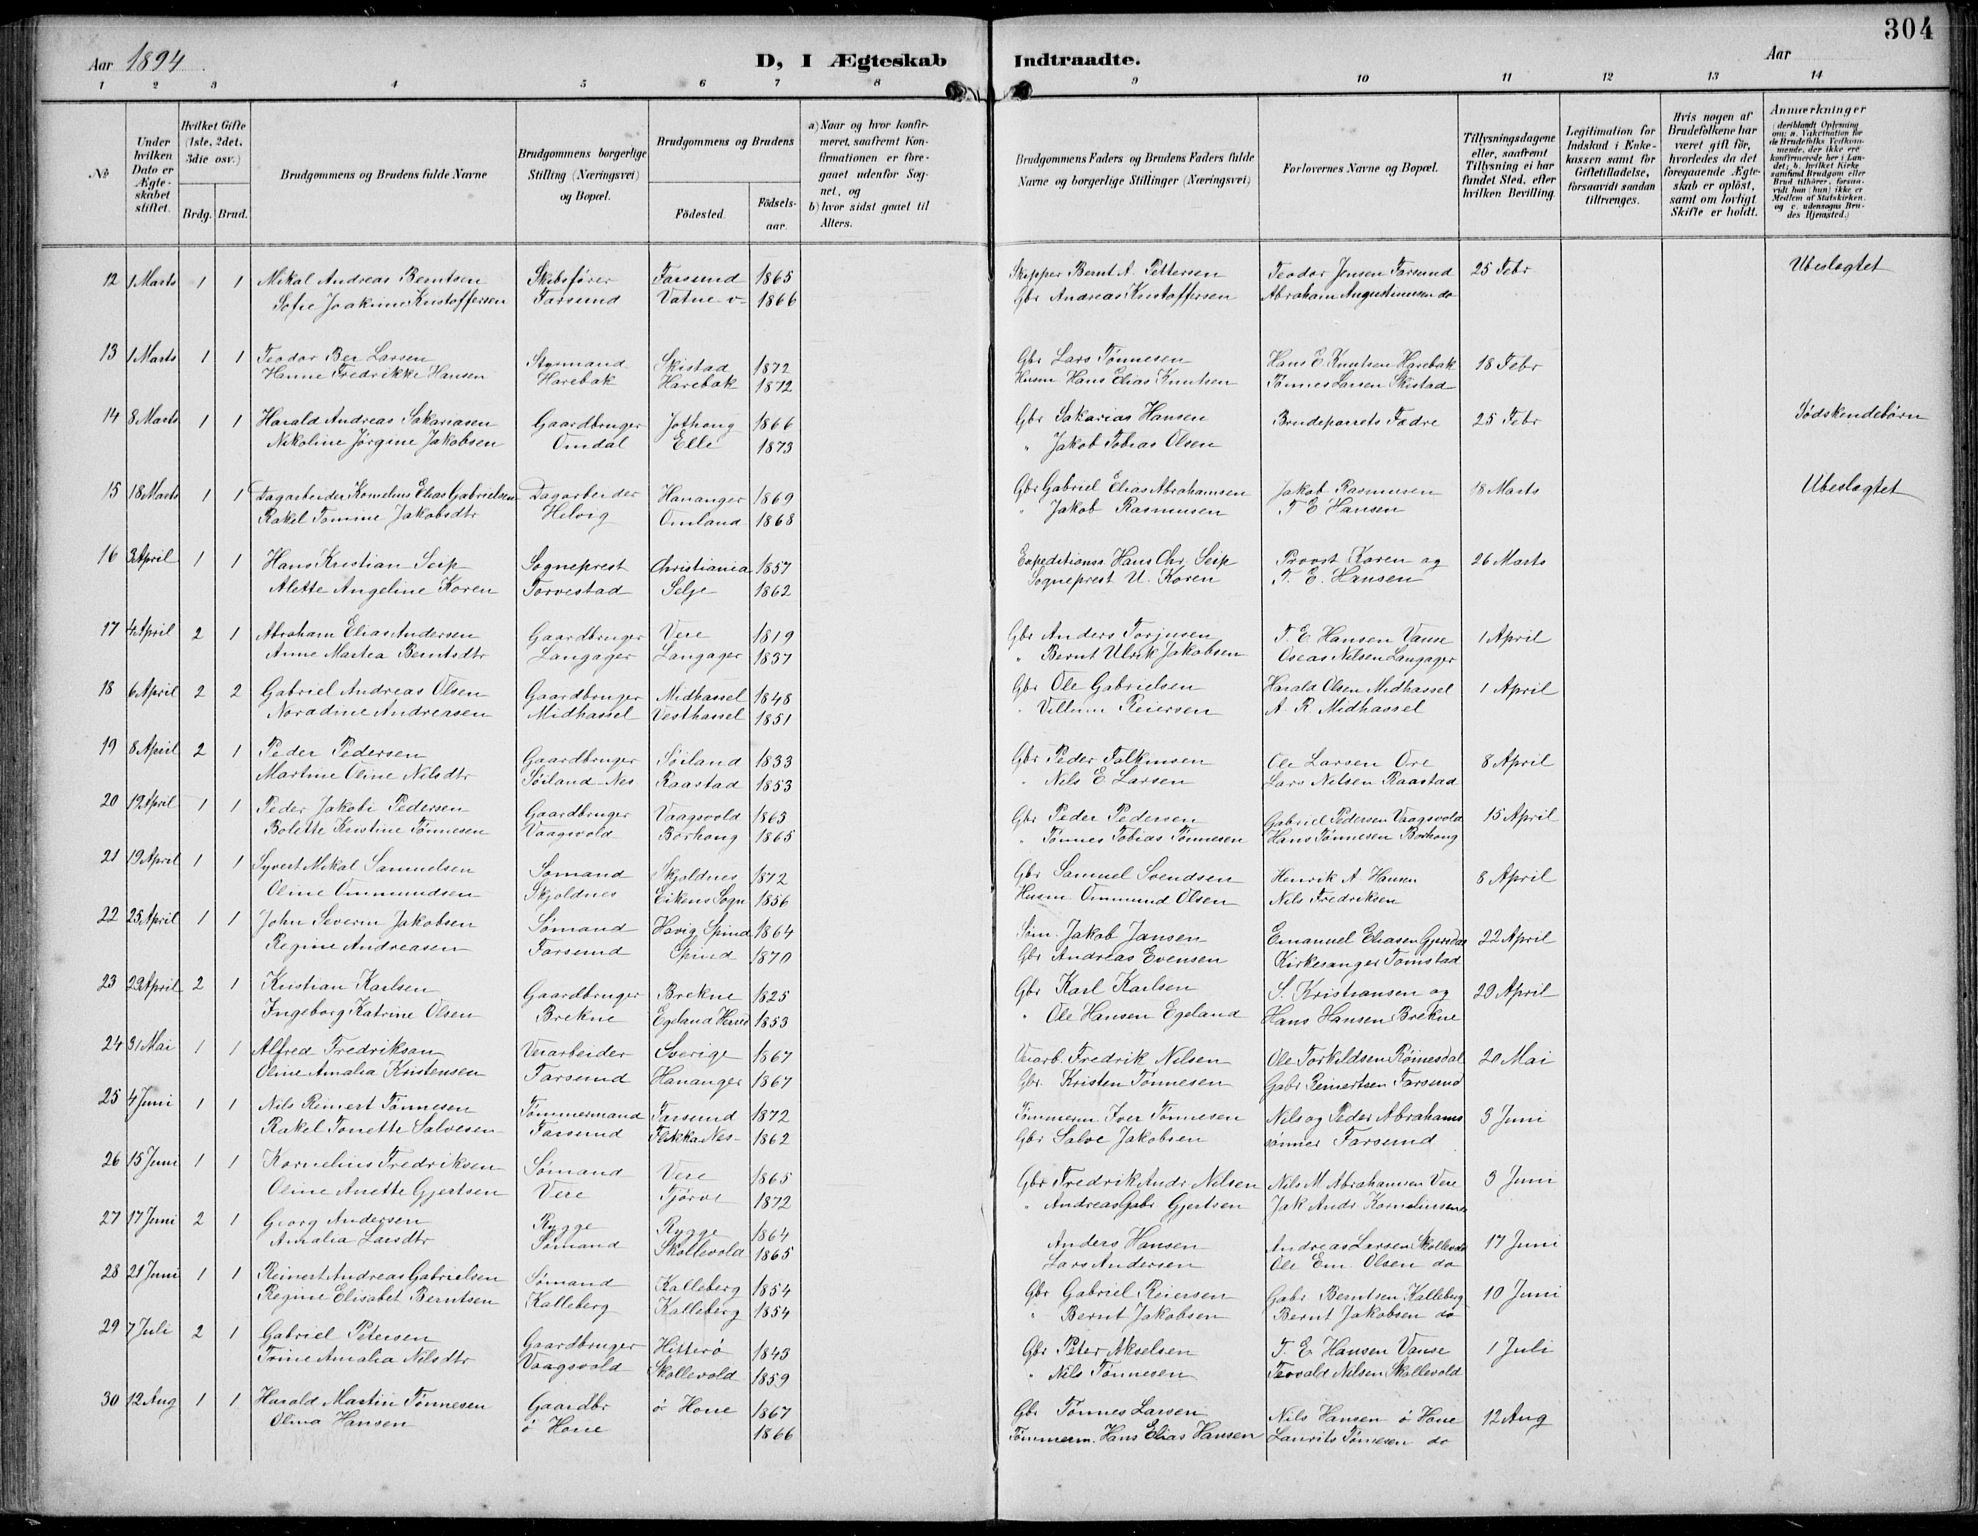 304
Aar 1894
D, I Ægteskab Indtraadte.
Aar
1 2 3 4 5 6 7 8 9 10 11 12 13 14
No
Under hvilken Dato er Ægteskabet stiftet.
Hvilket Gifte (1ste, 2det, 3die osv.)
Brdg. Brud.
Brudgommens og Brudens fulde Navne
Brudgommens borgerlige Stilling (Næringsvei) og Bopæl.
Brudgommens og Brudens
Fødested.
Fødselsaar.
a) Naar og hvor konfirmeret, saafremt Konfirmationen er foregaaet udenfor Sognet, og
b) hvor sidst gaaet til Alters.
Brudgommens Faders og Brudens Faders fulde Navne og borgerlige Stillinger (Næringsvei)
Forlovernes Navne og Bopæl.
Tillysningsdagene eller, saafremt Tillysning ei har fundet Sted, efter hvilken Bevilling
Legitimation for Indskud i Enkekassen samt for Giftetilladelse, forsaavidt saadan tiltrænges.
Hvis nogen af Brudefolkene har været gift før, hvorledes da det foregaaende Ægteskab er opløst, samt om lovligt Skifte er holdt.
Anmærkninger (deriblandt Oplysning om: a. Vakcination for de Brudefolks Vedkommende, der ikke ere konfirmerede her i Landet; b. hvilket Kirkesamfund Brudgom eller Brud tilhører, forsaavidt han (hun) ikke er Medlem af Statskirken, og c. udensogns Brudes Hjemsted.)
12 1 Marts 1 1 Mikal Andreas Berntsen Skibsfører Farsund 1865 Skipper Bernt A. Pettersen Teodor Jensen Farsund 25 Febr Ubeslegtet
Sofie Joakime Kristoffersen Farsund Vatne v- 1866 Gbr Andreas Kristoffersen Abraham Augustinussen do
13 1 Marts 1 1 Teodor Ber Larsen Styrmand Skistad 1872 Gbr Lars Tønnesen Hans E Knutsen Harebak 18 Febr
Hanne Fredrikke Hansen Harebak Harebak 1872 Husm Hans Elias Knutsen Tønnes Larsen Skistad
14 8 Marts 1 1 Harald Andreas Sakariasen Gaardbruger Jothong 1866 Gbr Sakarias Hansen Brudeparrets Fædre 25 Febr Sødskendebørn
Nikoline Jørgine Jakobsen Omdal Elle 1873 " Jakob Tobias Olsen
15 18 Marts 1 1 Dagarbeider Kornelius Elias Gabrielsen Dagarbeider Hananger 1869 Gbr Gabriel Elias Abrahamsen Jakob Rasmusen 18 Marts Ubeslegtet
Rakel Tomine Jakobsdtr Helvig Omland 1868 " Jakob Rasmusen T E Hansen
16 3 April 1 1 Hans Kristian Seip Sogneprest Christiania 1857 Expeditionss. Hans Chr. Seip Provst Koren og 26 Marts
Alette Angeline Koren Torvestad Selje 1862 Sogneprest U. Koren T. E. Hansen
17 4 April 2 1 Abraham Elias Andersen Gaardbruger Vere 1819 Gbr Anders Torjusen T. E. Hansen Vanse 1 April
Anne Martea Berntsdtr Langager Langager 1837 " Bernt Ulrik Jakobsen Oseas Nilsen Langager
18 6 April 2 2 Gabriel Andreas Olsen Gaardbruger Midhassel 1848 Gbr Ole Gabrielsen Harald Olsen Midhassel 1 April
Noradine Andreasen Midhassel Vesthassel 1851 " Villum Reiersen A. R. Midhassel
19 8 April 2 1 Peder Pedersen Gaardbruger Søiland 1833 Gbr Peder Falkinsen Ole Larsen Ore 8 April
Martine Oline Nilsdtr Søiland Nes Raastad 1853 " Nils E. Larsen Lars Nilsen Raastad
20 19 April 1 1 Peder Jakobi Pedersen Gaardbruger Vaagsvold 1863 Gbr Peder Pedersen Gabriel Pedersen Vaagsvold 15 April
Bolette Kristine Tønnesen Vaagsvold Borhong 1865 " Tønnes Tobias Tønnesen Hans Tønnesen Borhong
21 19 April 1 1 Syvert Mikal Samuelsen Sømand Skjoldnes 1872 Gbr Samuel Svendsen Henrik A. Hansen 8 April
Oline Ommundsen Skjoldnes Eikens Sogn 1856 Husm Ommund Olsen Nils Fredriksen
22 25 April 1 1 John Severin Jakobsen Sømand Høvig Spind 1864 Søm. Jakob Jansen Emanuel Eliasen Gjersdal 22 April
Regine Andreasen Farsund Spind 1870 Gbr Andreas Evensen Kirkesanger Tomstad
23 29 April 2 1 Kristian Karlsen Gaardbruger Brekne 1825 Gbr Karl Karlsen S. Kristiansen og 29 April
Ingeborg Katrine Olsen Brekne Egeland Herred 1853 " Ole Hansen Egeland Hans Hansen Brekne
24 31 Mai 1 1 Alfred Fredrikson Verarbeider Sverige 1867 Verarb. Fredrik Nilsen Ole Torkildsen Rømesdal 20 Mai
Oline Amalia Kristensen Farsund Hananger 1867 Gbr. Kristen Tønnesen Gabr Reinertsen Farsund
25 4 Juni 1 1 Nils Reinert Tønnesen Tømmermand Farsund 1872 Tømmerm Iver Tønnesen Nils og Peder Abrahams 3 Juni
Rakel Tonette Salvesen Farsund Flikka Nes- 1862 Gbr Salve Jakobsen sønner Farsund
26 15 Juni 1 1 Kornelius Fredriksen Sømand Vere 1865 Gbr Fredrik Andr Nilsen Nils M Abrahamsen Vere 3 Juni
Oline Anette Gjertsen Vere Tjørve 1872 " Andreas Gabr Gjertsen Jak Andr Korneliussen
27 17 Juni 2 1 Georg Andersen Rygge Rygge 1864 Anders Hansen Andreas Larsen Skollevold 17 Juni
Amalia Larsdtr Sømand Skollevold 1865 Lars Andersen Ole Em. Olsen do
28 21 Juni 1 1 Reinert Andreas Gabrielsen Sømand Kalleberg 1854 Gbr Gabriel Reiersen Gabr Berntsen Kalleberg 10 Juni
Regine Elisabet Berntsen Kalleberg Kalleberg 1854 " Bernt Jakobsen Bernt Jakobsen do
29 7 Juli 2 1 Gabriel Petersen Gaardbruger Hitterø 1843 Gbr Peter Akselsen T. E. Hansen Vanse 1 Juli
Trine Amalia Nilsdtr Vaagsvold Skollevold 1859 " Nils Tønnesen Teovald Nilsen Skollevold
30 12 Aug 1 1 Harald Martin Tønnesen Gaardbr ø Hone 1867 Gbr Tønnes Larsen Nils Hansen ø Hone 12 Aug
Olina Hansen ø Hone 1866 Tømmerm. Hans Elias Hansen Laurits Tømesen do